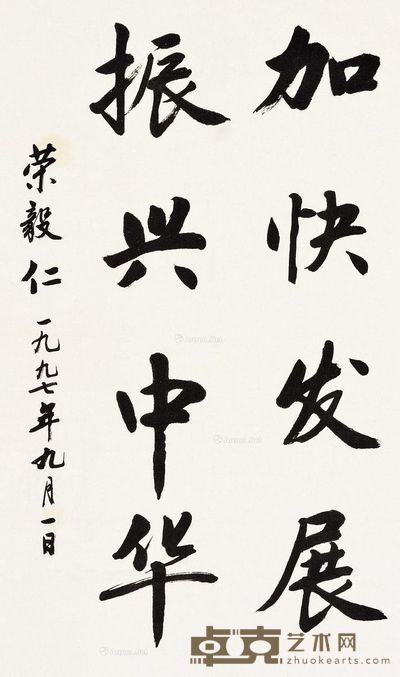 加快发展
振兴中华
荣毅仁 一九九七年九月一日
卓克艺术网
zhuokearts.com